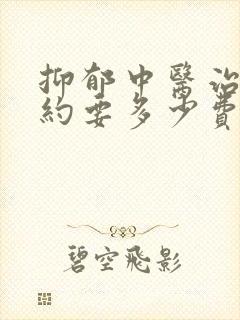 抑郁中醫治
約要多少費
碧空飛影